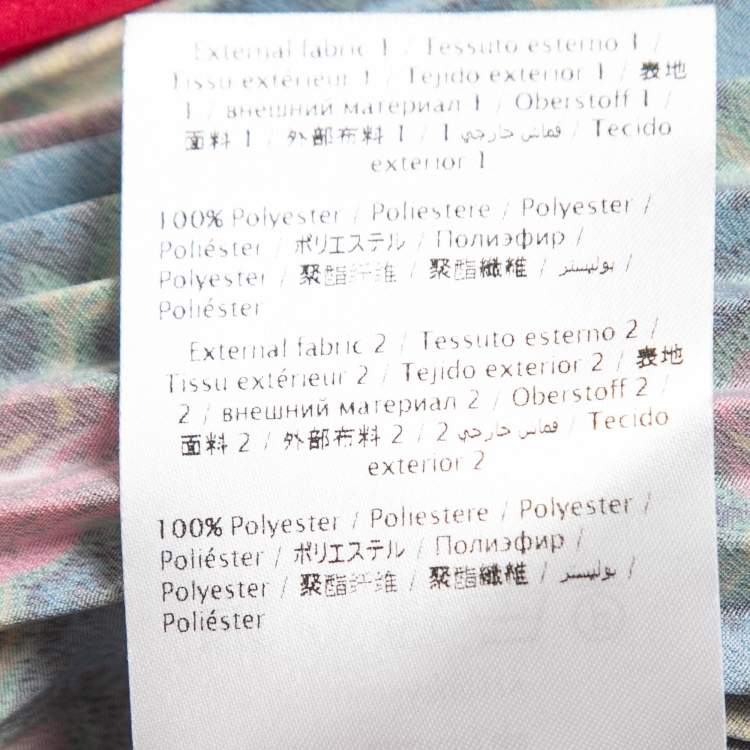 External fabric 1 / Tessuto esterno 1 /
Tissu extérieur 1 / Tejido exterior 1 / 表地
1 / внешний материал 1 / Oberstoff 1 /
面料 1 / 外部布料 1 / 1 قماش خارجي / Tecido
exterior 1
100% Polyester / Poliestere / Polyester /
Poliéster / ポリエステル / Полиэфир /
Polyester / 聚酯纤维 / 聚酯纖維 / بوليستر /
Poliéster
External fabric 2 / Tessuto esterno 2 /
Tissu extérieur 2 / Tejido exterior 2 / 表地
2 / внешний материал 2 / Oberstoff 2 /
面料 2 / 外部布料 2 / 2 قماش خارجي / Tecido
exterior 2
100% Polyester / Poliestere / Polyester /
Poliéster / ポリエステル / Полиэфир /
Polyester / 聚酯纤维 / 聚酯纖維 / بوليستر /
Poliéster